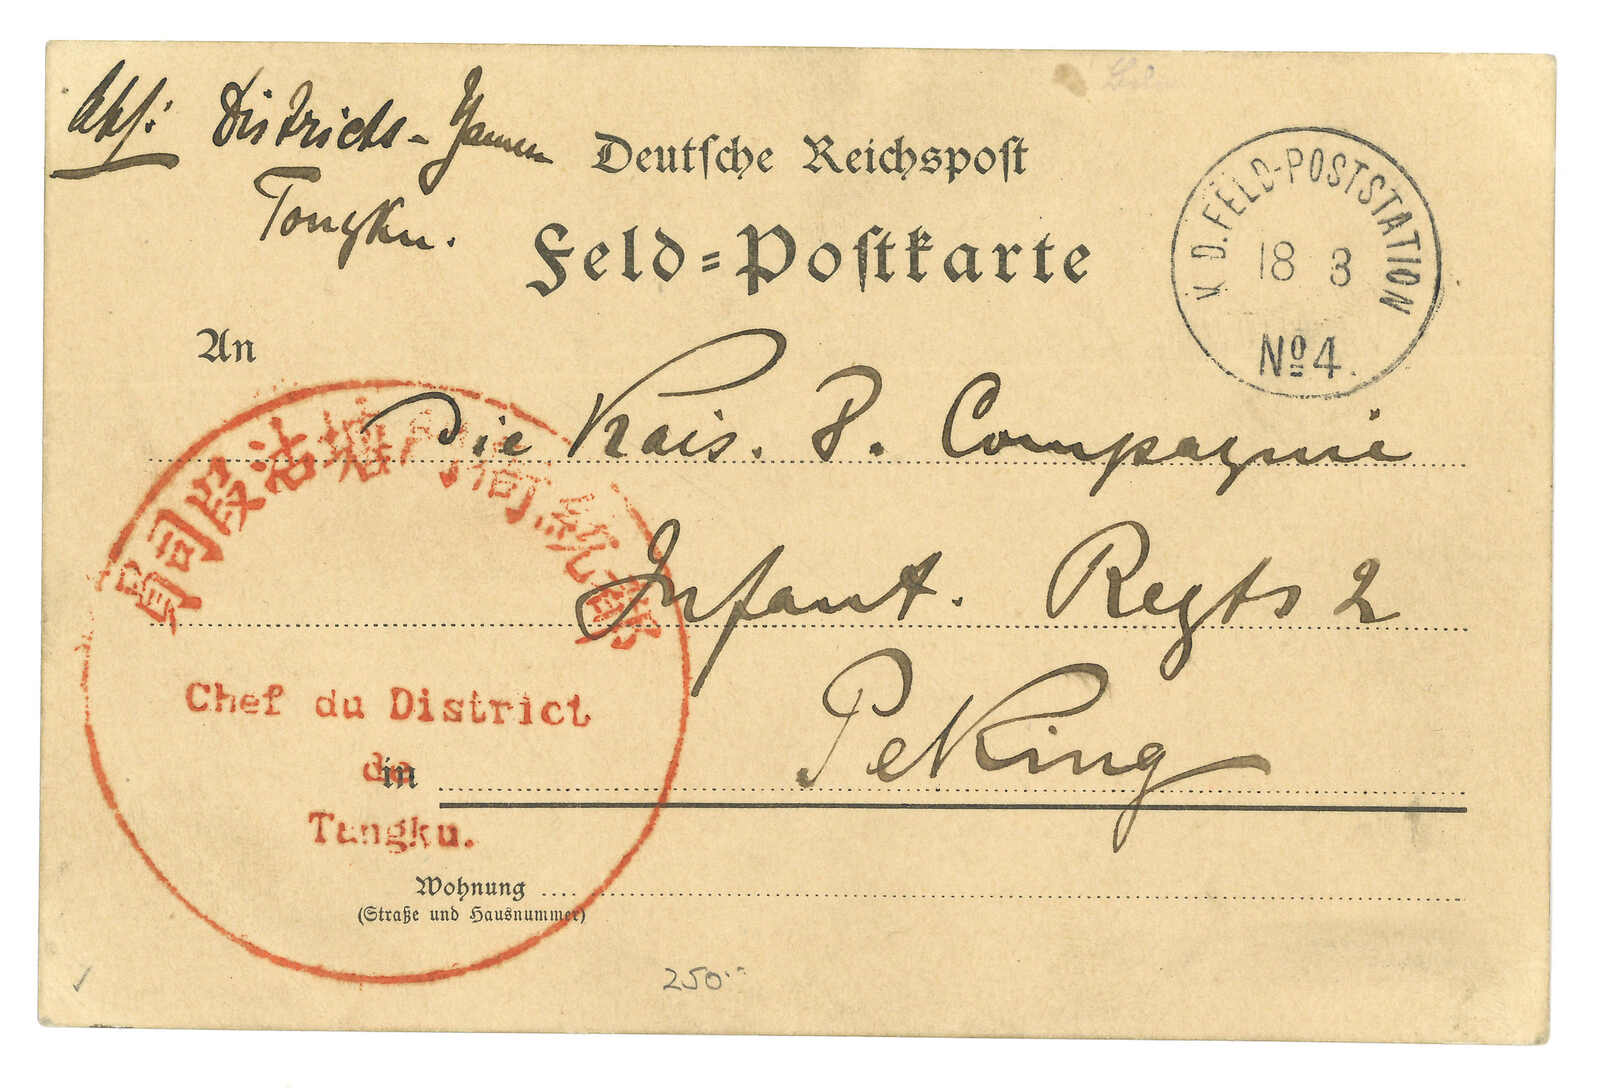 Abs: Districts-Yamen
Tongku.
Deutsche Reichspost
Feld-Postkarte
K. D. FELD-POSTSTATION
18 3
No 4.
An
Die Kais. 8. Compagnie
Infant. Regts 2
Peking
in
Wohnung
(Straße und Hausnummer)
段沽塘
Chef du District
de
Tangku.
250.--